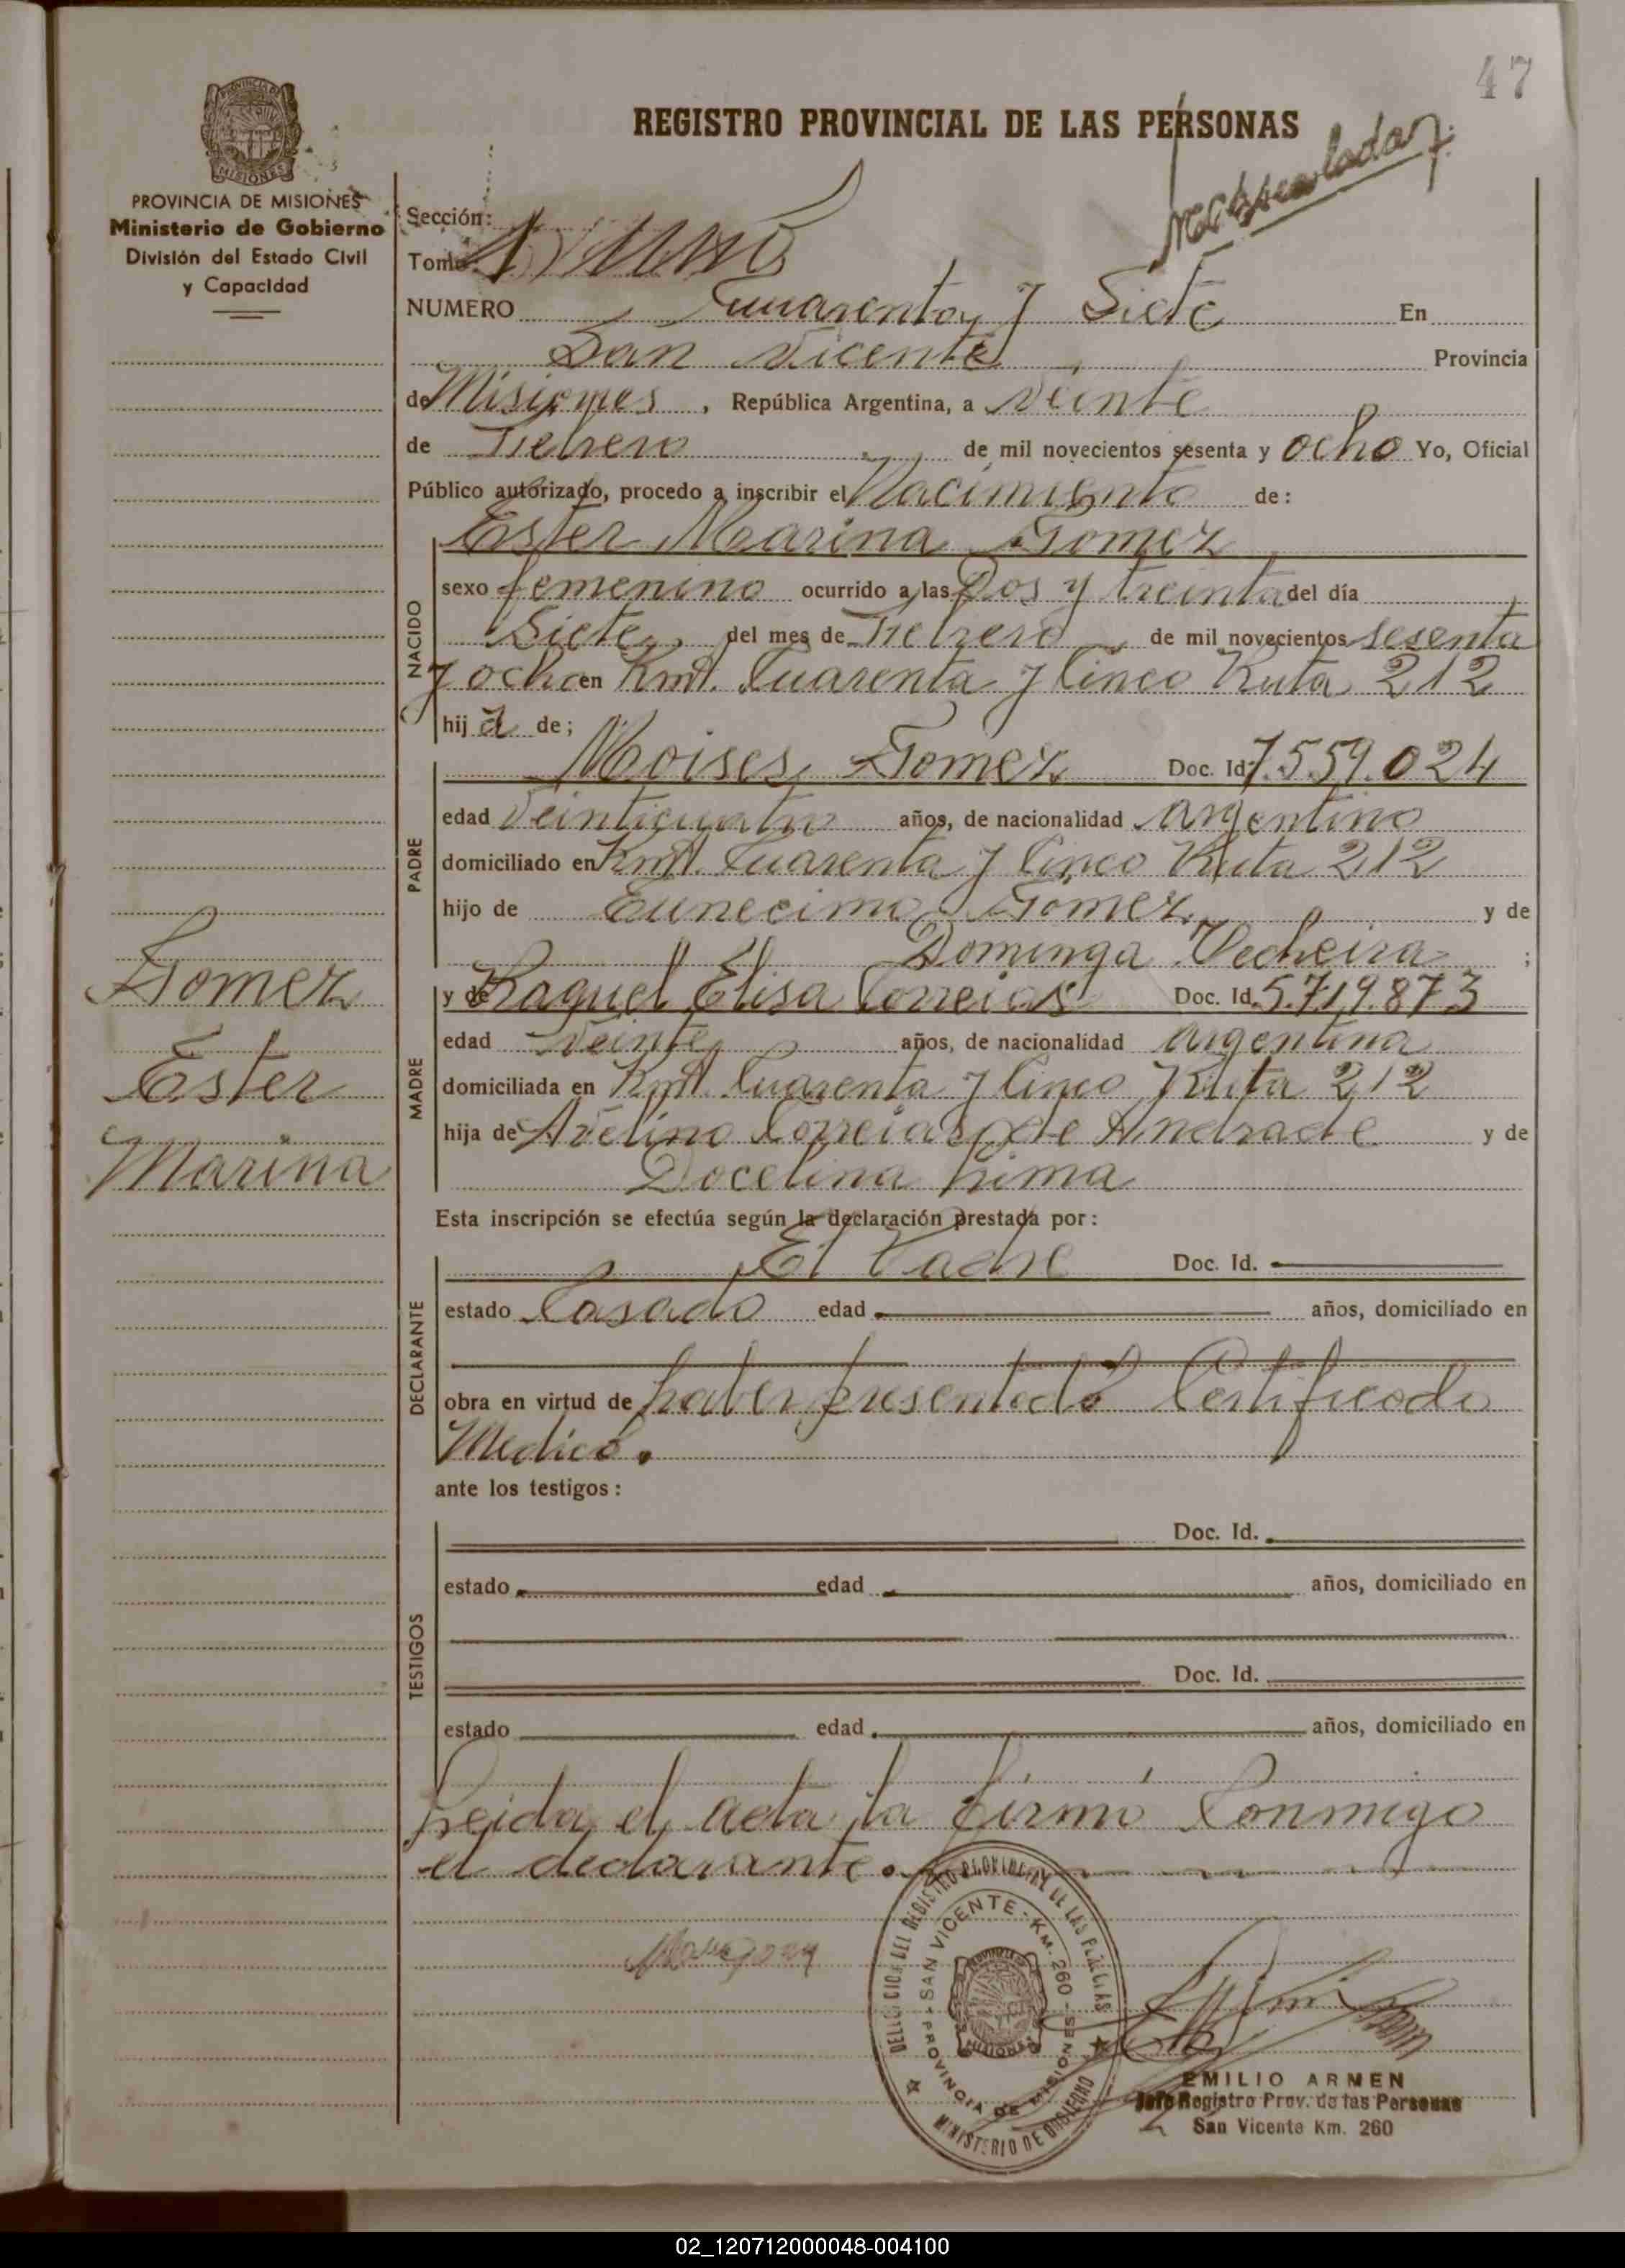 47
REGISTRO PROVINCIAL DE LAS PERSONAS
PROVINCIA DE MISIONES
Ministerio de Gobierno
División del Estado Civil
y Capacidad
Sección:
Tomo
NUMERO Cuuarenta y Siete En
San Vicente Provincia
de Misiones, República Argentina, a Veinte
de Febrero de mil novecientos sesenta y ocho Yo, Oficial
Público autorizado, procedo a inscribir el Nacimiento de:
Ester Marina Gomez
NACIDO
sexo femenino ocurrido a las Dos y treinta del día
Siete del mes de Febrero de mil novecientos sesenta
y ocho en Kmt. Cuarenta y Cinco Ruta 212
hij a de;
PADRE
Moises Gomez Doc. Id 7.559.024
edad Veinticuatro años, de nacionalidad Argentino
domiciliado en Kmt. Cuarenta y Cinco Ruta 212
hijo de Gomez y de
Dominga ;
MADRE
y de Raquel Elisa Correias Doc. Id. 5.719.873
edad Veinte años, de nacionalidad Argentina
domiciliada en Kmt. Cuarenta y Cinco Ruta 212
hija de Avelino Correias de Andrade y de
Docelina Lima
Gomez
Ester
Marina
Esta inscripción se efectúa según la declaración prestada por:
DECLARANTE
El Padre Doc. Id.
estado Casado edad años, domiciliado en
obra en virtud de haber presentado Certificado
Medico.
ante los testigos:
TESTIGOS
Doc. Id.
estado edad años, domiciliado en
Doc. Id.
estado edad años, domiciliado en
Leida el acta la firmó Conmigo
el declarante.
DEL REGISTRO PROVINCIAL DE LAS
SAN VICENTE - KM. 260 -
PROVINCIA DE MISIONES
MINISTERIO DE GOBIERNO
EMILIO ARMEN
Jefe Registro Prov. de las Personas
San Vicente Km. 260
02_120712000048-004100